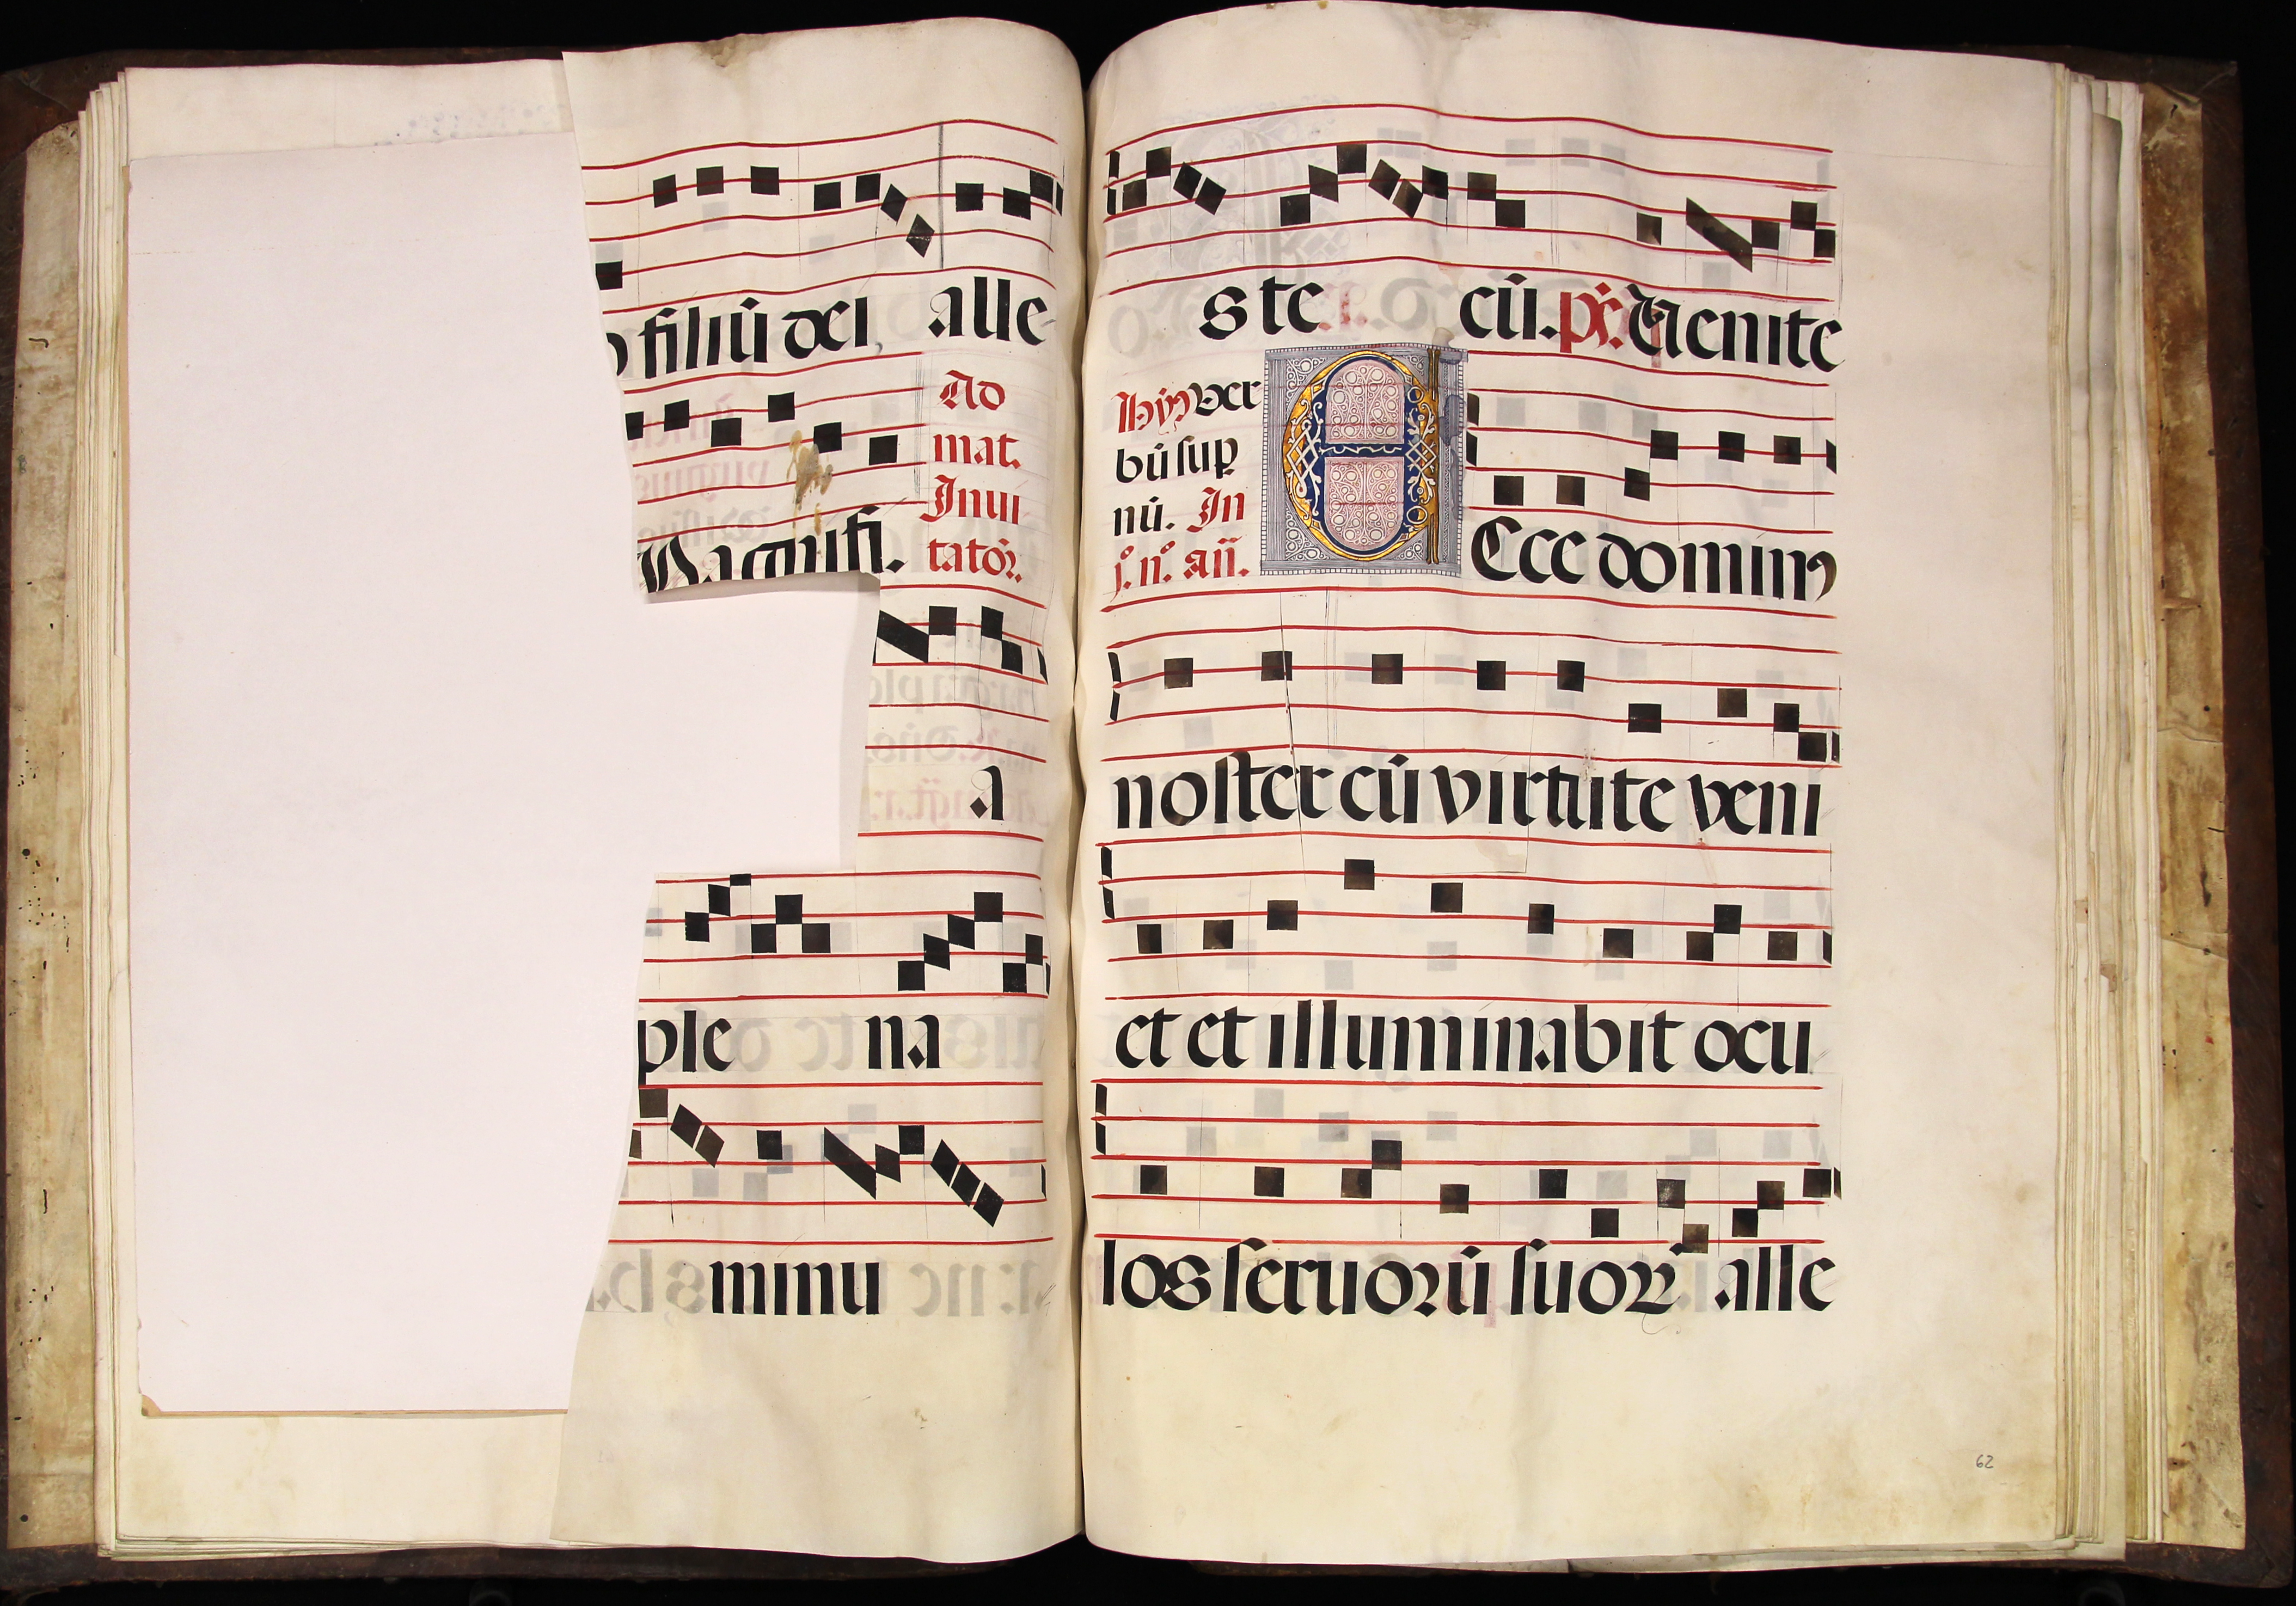 filiū dei, alle
Ad
mat.
Inui
tatoꝛ̄.
Magnifi.
a
ple na
minu
s te cū. ps̄. Venite
Hym̄ ver
bū sup
nū. In
j.º n.º añ.
Ecce dominꝰ
noster cū virtute veni
et et illuminabit ocu
los seruoꝛū suoꝝ alle
62